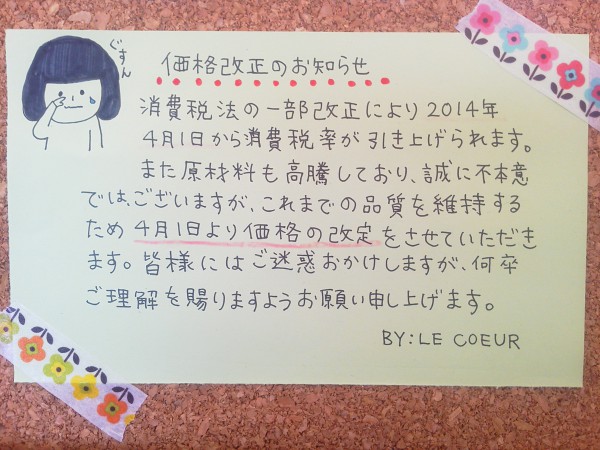 ぐすん
価格改正のお知らせ
消費税法の一部改正により2014年
4月1日から消費税率が引き上げられます。
また原材料も高騰しており、誠に不本意
では、ございますが、これまでの品質を維持する
ため4月1日より価格の改定をさせていただき
ます。皆様にはご迷惑おかけしますが、何卒
ご理解を賜りますようお願い申し上げます。
BY:LE COEUR